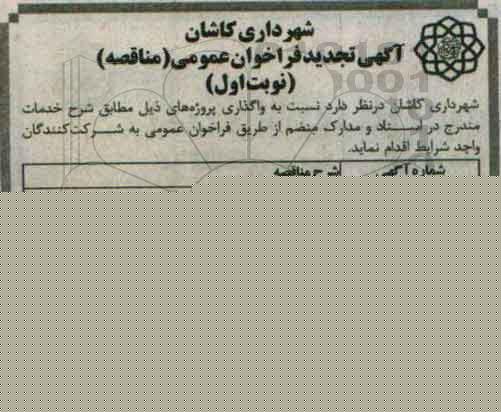 شهرداری کاشان
آگهی تجدید فراخوان عمومی (مناقصه)
(نوبت اول)
شهرداری کاشان درنظر دارد نسبت به واگذاری پروژه‌های ذیل مطابق شرح خدمات
مندرج در اسناد و مدارک منضم از طریق فراخوان عمومی به شرکت‌کنندگان
واجد شرایط اقدام نماید.
شماره آگهی شرح مناقصه